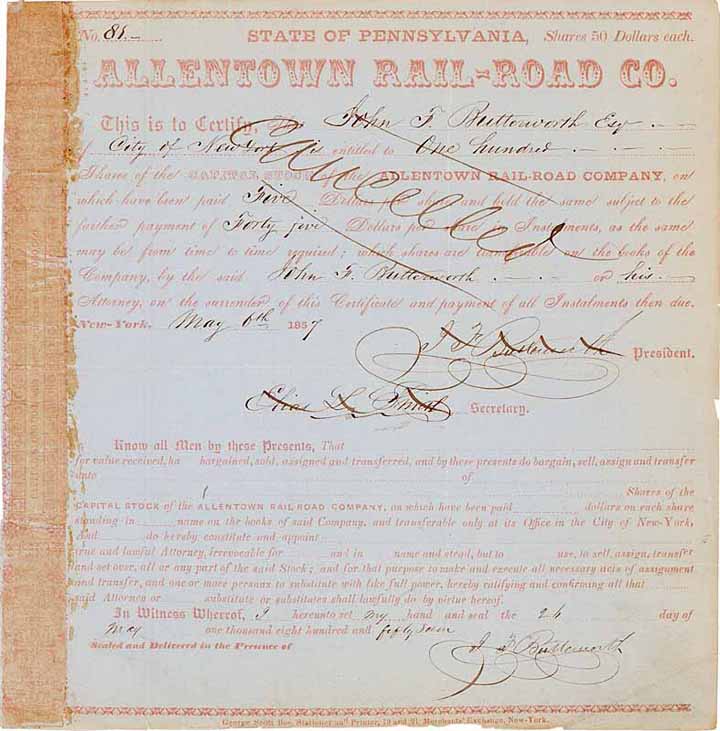 No. 81. STATE OF PENNSYLVANIA, Shares 50 Dollars each.
ALLENTOWN RAIL-ROAD CO.
This is to Certify, John F. Butterworth Esq
of City of New York is entitled to One hundred
Shares of the CAPITAL STOCK of the ALLENTOWN RAIL-ROAD COMPANY, on
which have been paid Five Dollars per share and hold the same subject to the
further payment of Forty five Dollars per share in Instalments, as the same
may be from time to time required; which shares are transferable on the books of the
Company, by the said John F. Butterworth or his
Attorney, on the surrender of this Certificate and payment of all Instalments then due.
Cancelled
New-York. May 6th 1857
J F Butterworth President.
Secretary.
Know all Men by these Presents, That
for value received, ha bargained, sold, assigned and transferred, and by these presents do bargain, sell, assign and transfer
unto of
Shares of the
CAPITAL STOCK of the ALLENTOWN RAIL ROAD COMPANY, on which have been paid dollars on each share
standing in name on the books of said Company, and transferable only at its Office in the City of New-York,
And do hereby constitute and appoint
true and lawful Attorney, irrevocable for and in name and stead, but to use, to sell, assign, transfer
and set over, all or any part of the said Stock; and for that purpose to make and execute all necessary acts of assignment
and transfer, and one or more persons to substitute with like full power, hereby ratifying and confirming all that
said Attorney or substitute or substitutes shall lawfully do by virtue hereof.
In Witness Whereof, I hereunto set my hand and seal the 26 day of
May one thousand eight hundred and fifty seven
Sealed and Delivered in the Presence of J F Butterworth
George Scott Roe, Stationer and Printer, 19 and 21, Merchants' Exchange, New-York.